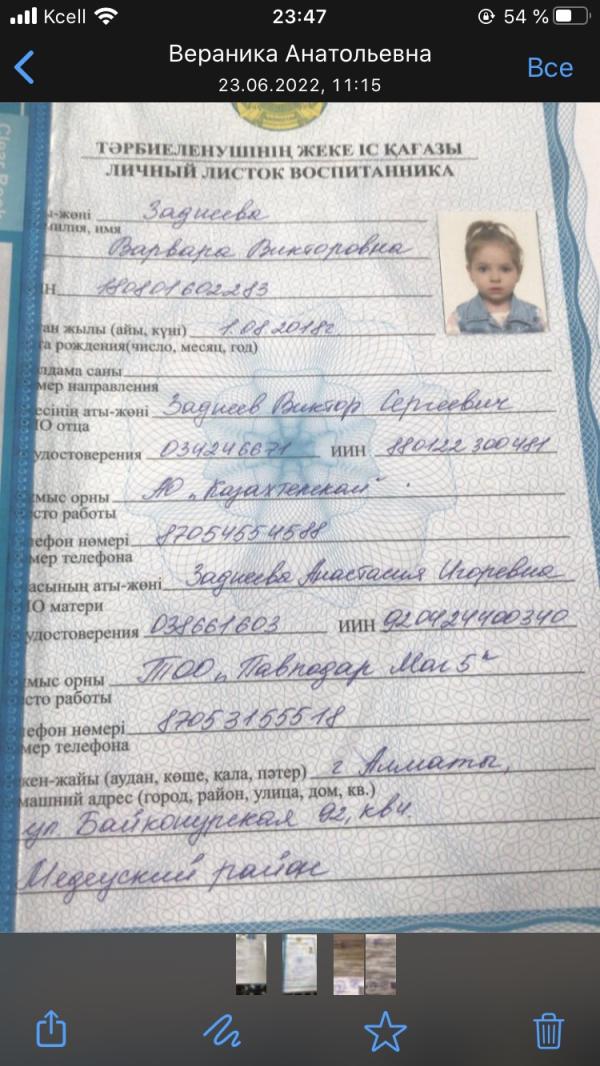 Kcell 23:47 54 %
Вераника Анатольевна
23.06.2022, 11:15
Все
Clear Book
ТӘРБИЕЛЕНУШІНІҢ ЖЕКЕ ІС ҚАҒАЗЫ
ЛИЧНЫЙ ЛИСТОК ВОСПИТАННИКА
ы-жөні Заднеева
милия, имя
Варвара Викторовна
Н 180801602283
ған жылы (айы, күні) 1.08.2018г
та рождения(число, месяц, год)
лдама саны
мер направления
есінің аты-жөні Заднеев Виктор Сергеевич
ИО отца
удостоверения 034246671 ИИН 880122300481
мыс орны АО „Казахтелеком"
сто работы
лефон нөмері 87054554588
мер телефона
асының аты-жөні Заднеева Анастасия Игоревна
ИО матери
удостоверения 038661603 ИИН 920424400340
мыс орны ТОО „Павлодар Маг 5"
сто работы
лефон нөмері 87053155518
мер телефона
кен-жайы (аудан, көше, қала, пәтер) г Алматы,
машний адрес (город, район, улица, дом, кв.)
ул. Байконурская 92, кв4.
Медеуский район